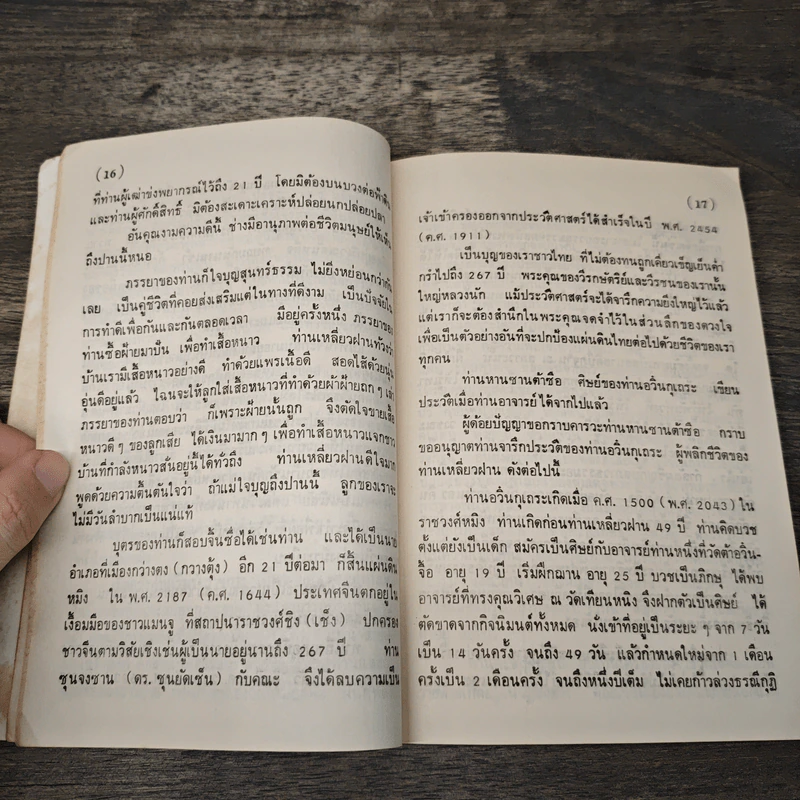 (16)
ที่ท่านผู้เฒ่าข่งพยากรณ์ไว้ถึง 21 ปี โดยมิต้องบนบวงต่อฟ้าดิน
และท่านผู้ศักดิ์สิทธิ์ มิต้องสะเดาะเคราะห์ปล่อยนกปล่อยปลา
อันคุณงามความดีนี้ ช่างมีอานุภาพต่อชีวิตมนุษย์ให้เห็น
ถึงปานนี้หนอ
ภรรยาของท่านก็ใจบุญสุนทร์ธรรม ไม่ยิ่งหย่อนกว่ากัน
เลย เป็นคู่ชีวิตที่คอยส่งเสริมแต่ในทางที่ดีงาม เป็นปัจจัยใน
การทำดีเพื่อกันและกันตลอดเวลา มีอยู่ครั้งหนึ่ง ภรรยาของ
ท่านซื้อฝ้ายมาปั่น เพื่อทำเสื้อหนาว ท่านเหลี่ยวฝานท้วงว่า
บ้านเรามีเสื้อหนาวอย่างดี ทำด้วยแพรเนื้อดี สอดไส้ด้วยนุ่น
อุ่นดีอยู่แล้ว ไฉนจะให้ลูกใส่เสื้อหนาวที่ทำด้วยผ้าฝ้ายถูกๆ เล่า
ภรรยาของท่านตอบว่า ก็เพราะฝ้ายนั้นถูก จึงตัดใจขายเสื้อ
หนาวดีๆ ของลูกเสีย ได้เงินมามากๆ เพื่อทำเสื้อหนาวแจกชาว
บ้านที่กำลังหนาวสั่นอยู่นี้ได้ทั่วถึง ท่านเหลี่ยวฝานดีใจมาก
พูดด้วยความตื้นตันใจว่า ถ้าแม่ใจบุญถึงปานนี้ ลูกของเราจะ
ไม่มีวันลำบากเป็นแน่แท้
บุตรของท่านก็สอบจิ้นซื่อได้เช่นท่าน และได้เป็นนาย
อำเภอที่เมืองกว่างตง (กวางตุ้ง) อีก 21 ปีต่อมา ก็สิ้นแผ่นดิน
หมิง ใน พ.ศ. 2187 (ค.ศ. 1644) ประเทศจีนตกอยู่ใน
เงื้อมมือของชาวแมนจู ที่สถาปนาราชวงศ์ชิง (เช็ง) ปกครอง
ชาวจีนตามวิสัยเชิงเช่นผู้เป็นนายอยู่นานถึง 267 ปี ท่าน
ซุนจงซาน (ดร. ซุนยัดเซ็น) กับคณะ จึงได้ลบความเป็น
(17)
เจ้าเข้าครองออกจากประวัติศาสตร์ได้สำเร็จในปี พ.ศ. 2454
(ค.ศ. 1911)
เป็นบุญของเราชาวไทย ที่ไม่ต้องทนถูกเคี่ยวเข็ญเย็นค่ำ
กรำไปถึง 267 ปี พระคุณของวีรกษัตริย์และวีรชนของเรานั้น
ใหญ่หลวงนัก แม้ประวัติศาสตร์จะได้จารึกความยิ่งใหญ่ไว้แล้ว
แต่เราก็จะต้องสำนึกในพระคุณจดจำไว้ในส่วนลึกของดวงใจ
เพื่อเป็นตัวอย่างอันที่จะปกป้องแผ่นดินไทยต่อไปด้วยชีวิตของเรา
ทุกคน
ท่านหานซานต้าซือ ศิษย์ของท่านอวิ๋นกุเถระ เขียน
ประวัติเมื่อท่านอาจารย์ได้จากไปแล้ว
ผู้ด้อยปัญญาขอกราบคารวะท่านหานซานต้าซือ กราบ
ขออนุญาตท่านจารึกประวัติของท่านอวิ๋นกุเถระ ผู้พลิกชีวิตของ
ท่านเหลี่ยวฝาน ดังต่อไปนี้
ท่านอวิ๋นกุเถระเกิดเมื่อ ค.ศ. 1500 (พ.ศ. 2043) ใน
ราชวงศ์หมิง ท่านเกิดก่อนท่านเหลี่ยวฝาน 49 ปี ท่านคิดบวช
ตั้งแต่ยังเป็นเด็ก สมัครเป็นศิษย์กับอาจารย์ท่านหนึ่งที่วัดต้าอวิ๋น-
จื้อ อายุ 19 ปี เริ่มฝึกฌาน อายุ 25 ปี บวชเป็นภิกษุ ได้พบ
อาจารย์ที่ทรงคุณวิเศษ ณ วัดเทียนหนิง จึงฝากตัวเป็นศิษย์ ได้
ตัดขาดจากกิจนิมนต์ทั้งหมด นั่งเข้าที่อยู่เป็นระยะๆ จาก 7 วัน
เป็น 14 วันครั้ง จนถึง 49 วัน แล้วกำหนดใหม่จาก 1 เดือน
ครั้งเป็น 2 เดือนครั้ง จนถึงหนึ่งปีเต็ม ไม่เคยก้าวล่วงธรณีกุฏิ